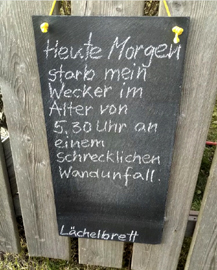 Heute Morgen
starb mein
Wecker im
Alter von
5,30 Uhr an
einem
schrecklichen
Wandunfall.
Lächelbrett